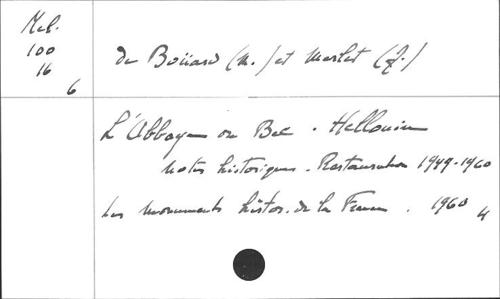 Mel.
100
16
6
de Boüard (M.) et Merlet (J.)
L'Abbaye du Bec-Hellouin
Notes historiques. Restauration 1949-1960
Les monuments histor. de la France. 1960
4